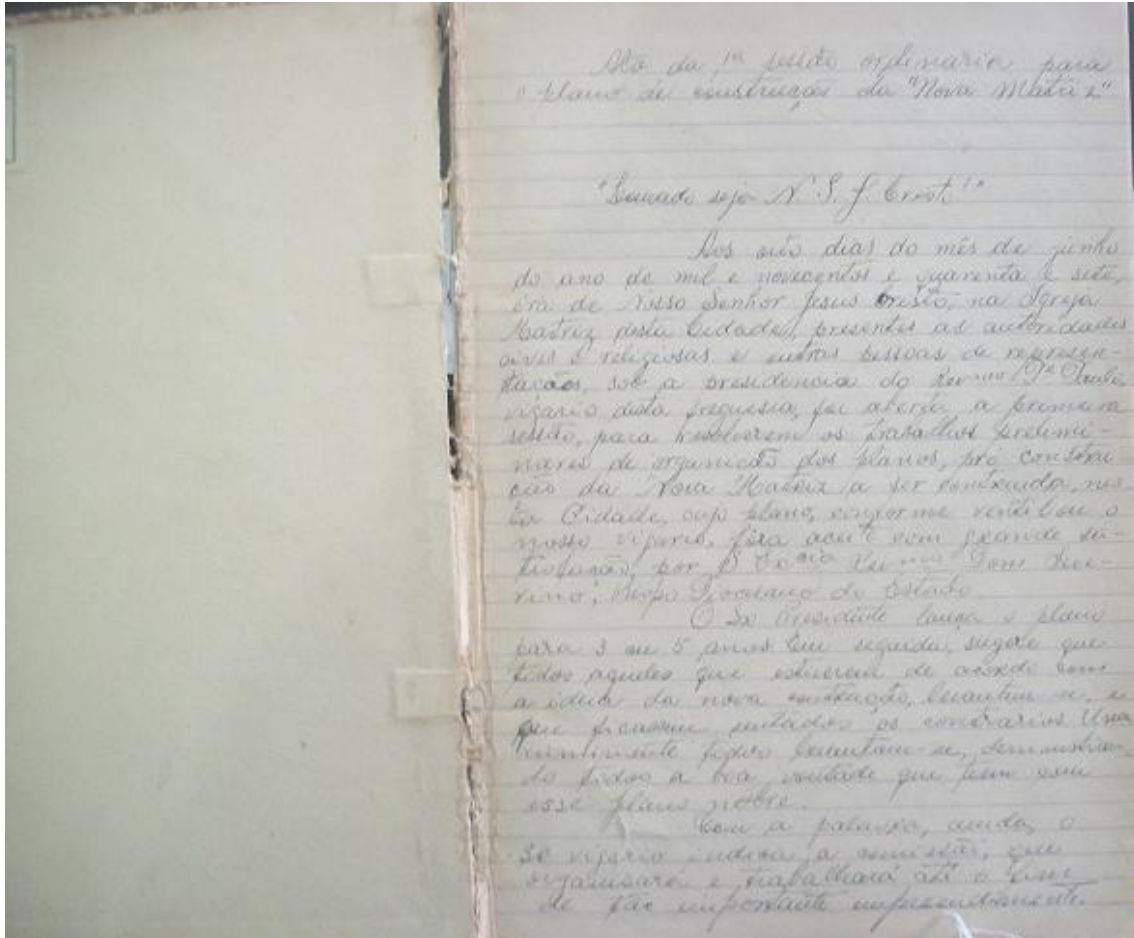 Ata da 1ª sessão ordinaria para
o plano de construção da "Nova Matriz"
"Louvado seja N. S. J. Crist!"
Aos oito dias do mês de junho
do ano de mil e novecentos e quarenta e sete,
era de Nosso Senhor Jesus Cristo, na Igreja
Matriz desta Cidade, presentes as autoridades
civis e religiosas e outras pessoas de represen-
tações, sob a presidencia do Revmo Pe Paulo,
vigario desta freguesia, foi aberta a primeira
sessão, para resolverem os trabalhos prelimi-
nares de organicão dos planos, pró constru-
ção da Nova Matriz a ser construida, nes-
ta Cidade, cujo plano, conforme ventilou o
nosso vigario, fôra aceito com grande sa-
tisfação, por S. Excia Revmo Dom
Bispo Diocesano do Estado.
O Sr. Presidente lança o plano
para 3 ou 5 anos. Em seguida, sugere que
todos aqueles que estiverem de acordo com
a ideia da nova construção, levantem-se, e
que ficassem sentados os contrarios. Una-
nimimente todos levantam-se, demonstran-
do todos a boa vontade que tem com
esse plano nobre.
Com a palavra, ainda, o
Sr. vigario indica a comissão, que
organisará e trabalhará até o fim
de tão importante empreendimento.